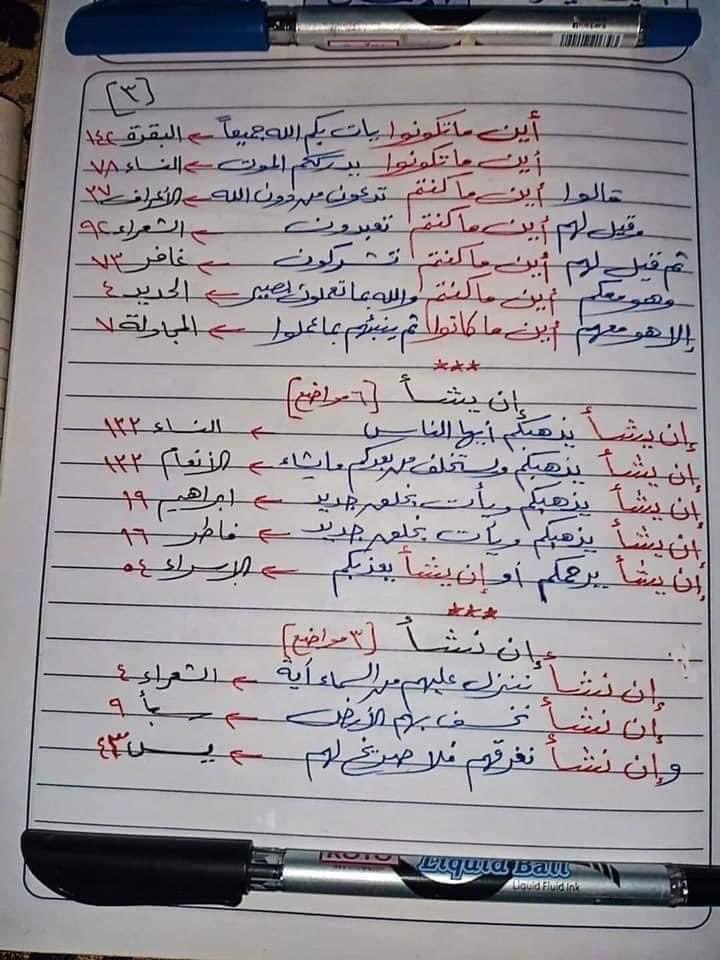 [٣]
أين ما تكونوا يأت بكم الله جميعاً ← البقرة ١٤٨
أين ما تكونوا يدرككم الموت ← النساء ٧٨
قالوا أين ما كنتم تدعون من دون الله ← الأعراف ٣٧
وقيل لهم أين ما كنتم تعبدون ← الشعراء ٩٢
ثم قيل لهم أين ما كنتم تشركون ← غافر ٧٣
وهو معكم أين ما كنتم والله بما تعملون بصير ← الحديد ٤
إلا هو معهم أين ما كانوا ثم ينبئهم بما عملوا ← المجادلة ٧
***
إن يشأ [٦ مواضع]
إن يشأ يذهبكم أيها الناس ← النساء ١٣٣
إن يشأ يذهبكم ويستخلف من بعدكم ما يشاء ← الأنعام ١٣٣
إن يشأ يذهبكم ويأت بخلق جديد ← ابراهيم ١٩
إن يشأ يذهبكم ويأت بخلق جديد ← فاطر ١٦
إن يشأ يرحمكم أو إن يشأ يعذبكم ← الإسراء ٥٤
***
إن نشأ [٣ مواضع]
إن نشأ ننزل عليهم من السماء آية ← الشعراء ٤
إن نشأ نخسف بهم الأرض ← سبأ ٩
وإن نشأ نغرقهم فلا صريخ لهم ← يس ٤٣
Liquid Ball
Liquid Fluid Ink